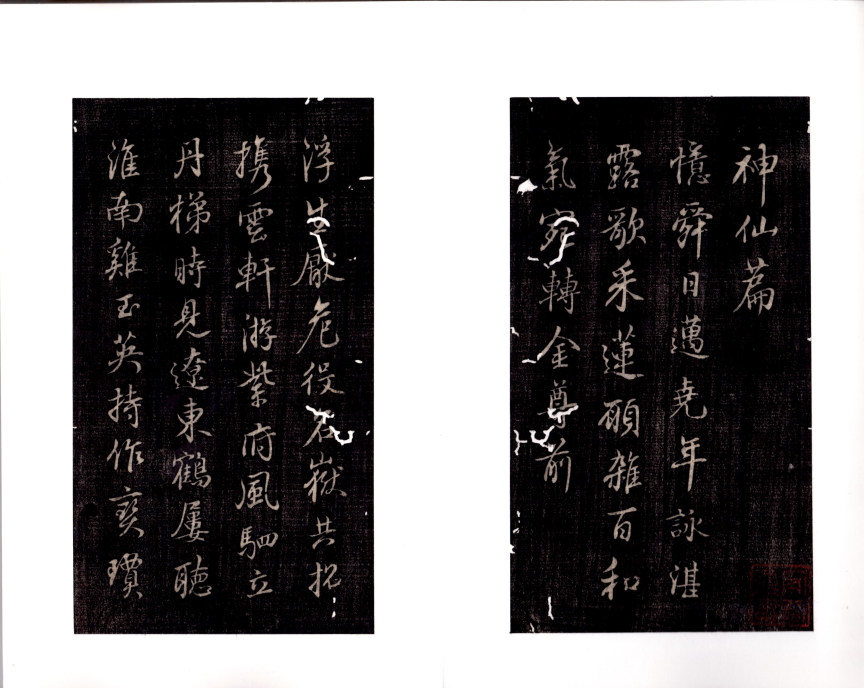 神仙篇
憶舜日邁堯年詠湛
露歌采蓮願雜百和
氣宛轉金尊前
浮生厭危役名嶽共招
携雲軒游紫府風駟立
丹梯時見遼東鶴屢聽
淮南雞玉英持作寶瓊